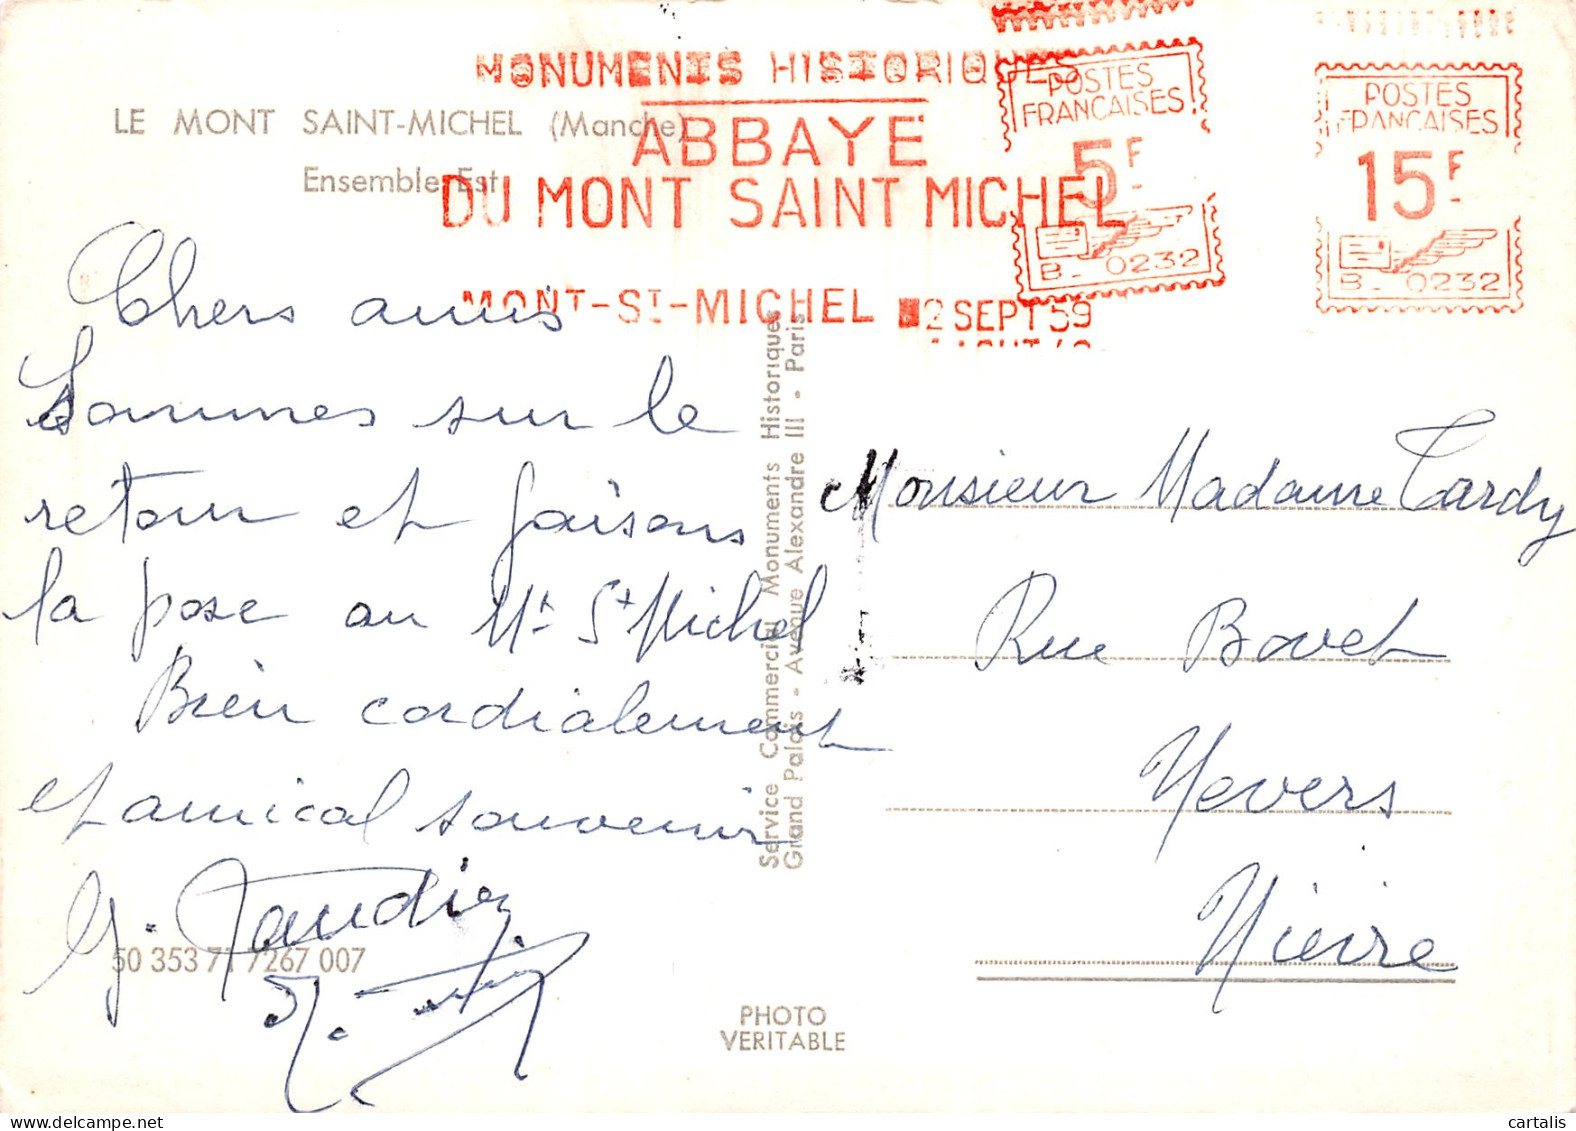 MONUMENTS HISTORIQUES
ABBAYE
DU MONT SAINT MICHEL
MONT-ST-MICHEL 2 SEPT 59
POSTES
FRANÇAISES
5F
B_ 0232
POSTES
FRANÇAISES
15F
B_ 0232
LE MONT SAINT-MICHEL (Manche)
Ensemble Est
Chers amis
Sommes sur le
retour et faisons
la pose au Mt St Michel
Bien cordialement
et amical souvenir
G.
50 353 71 7267 007
Service Commercial Monuments Historiques
Grand Palais - Avenue Alexandre III - Paris
PHOTO
VERITABLE
Monsieur Madame Tardy
Rue Bovet
Nevers
Nièvre
cartalis